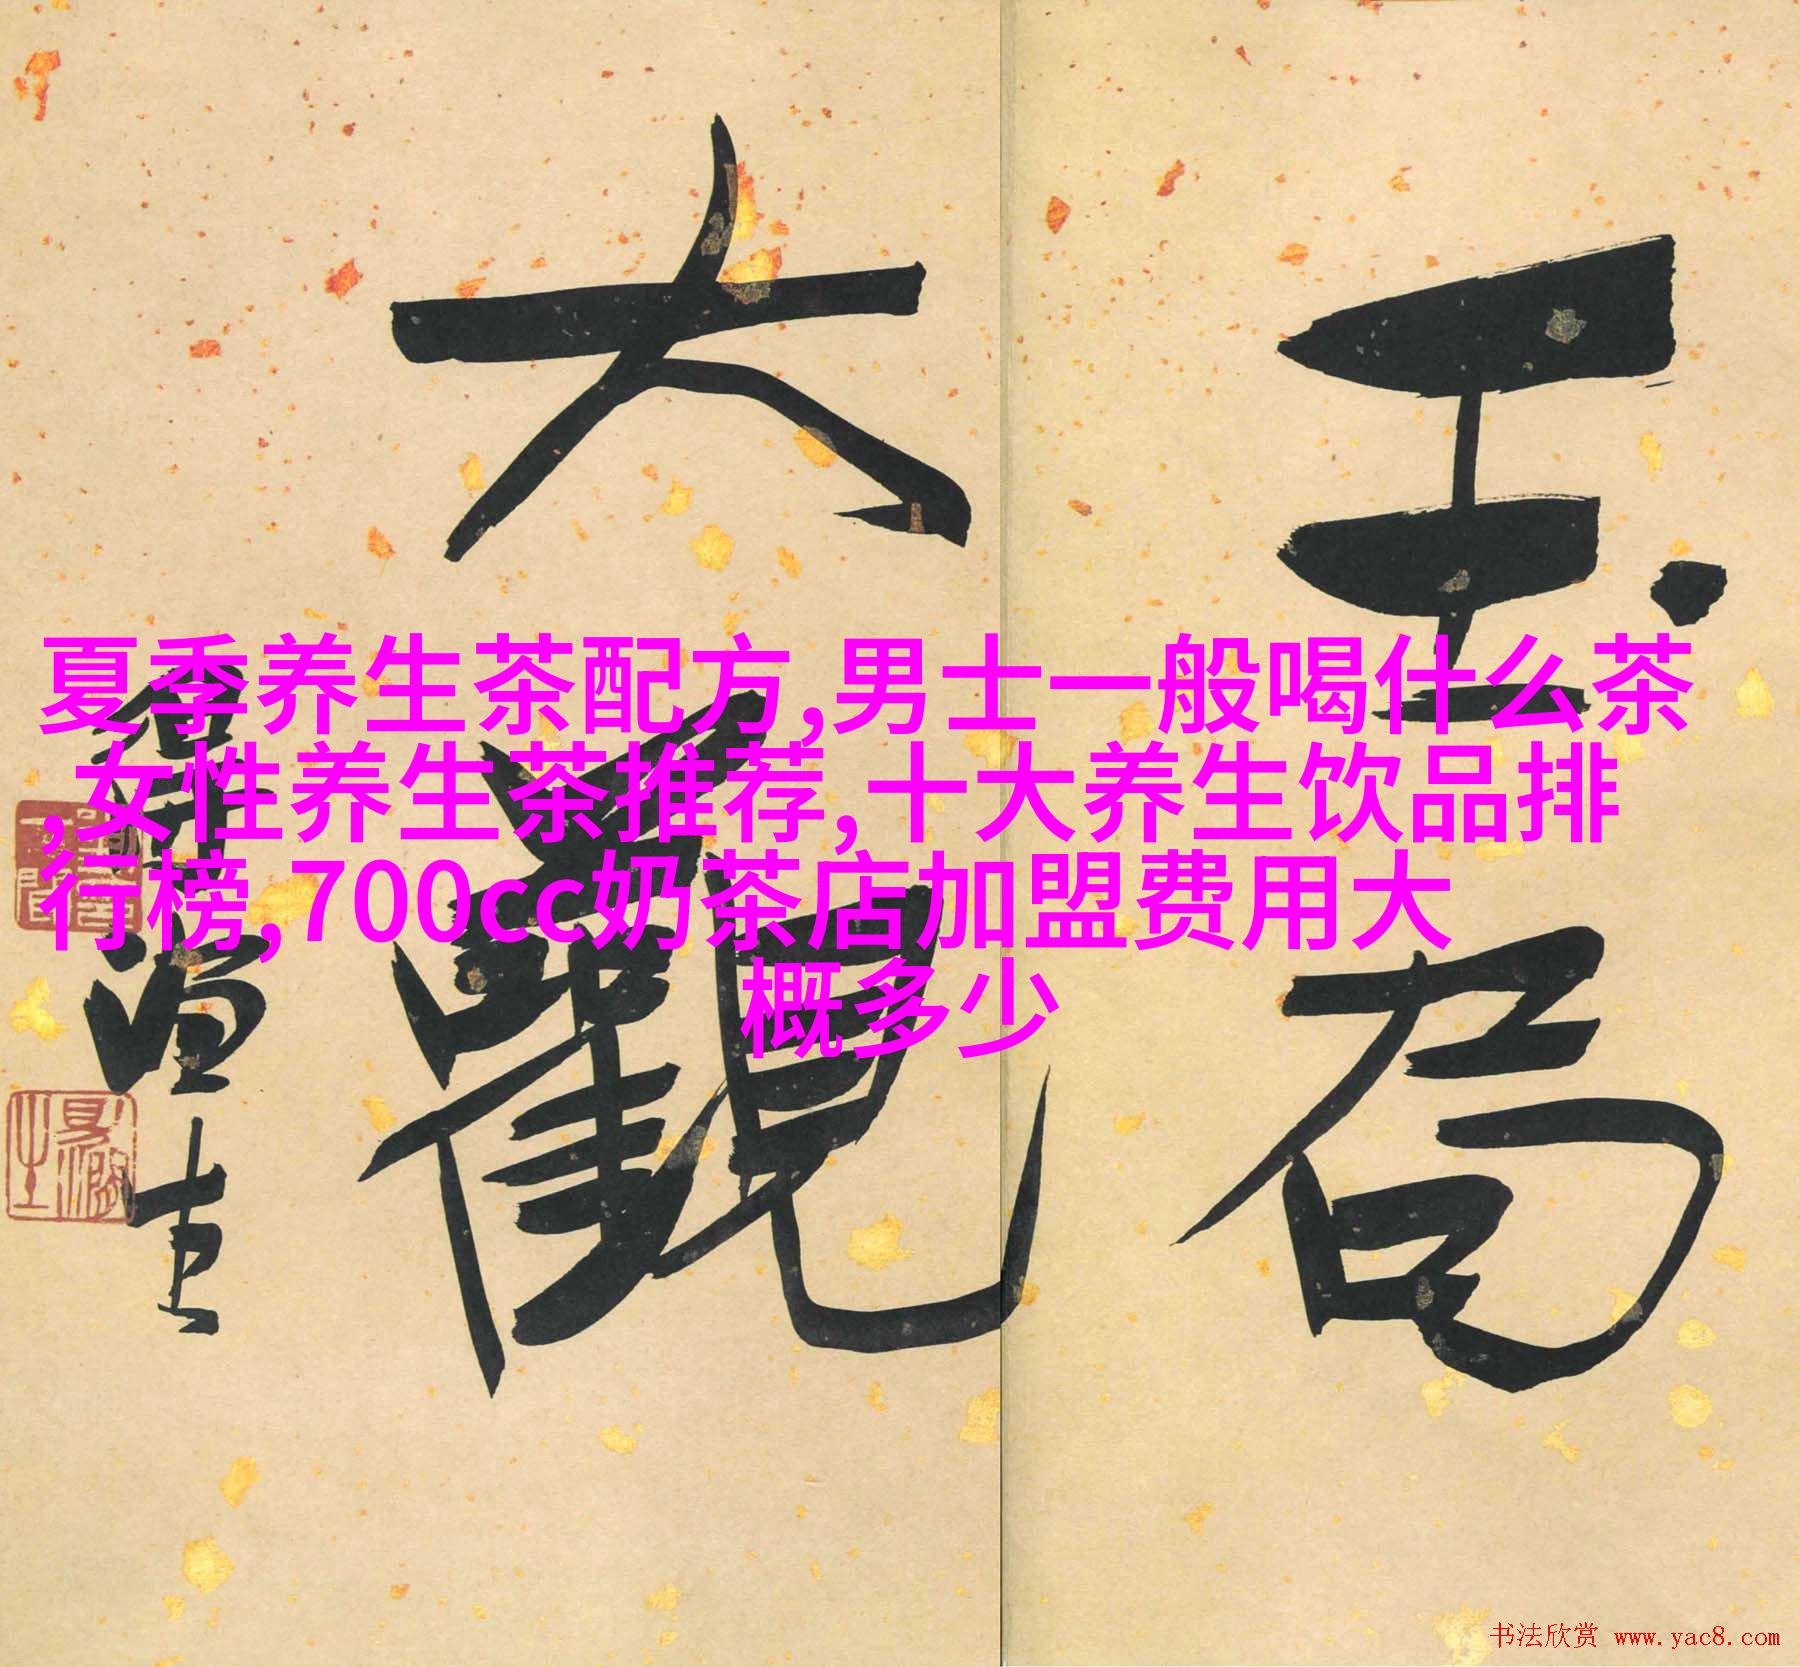 玉局
大觀
夏季养生茶配方,男士一般喝什么茶
,女性养生茶推荐,十大养生饮品排
行榜,700cc奶茶店加盟费用大
概多少
书法欣赏 www.yac8.com